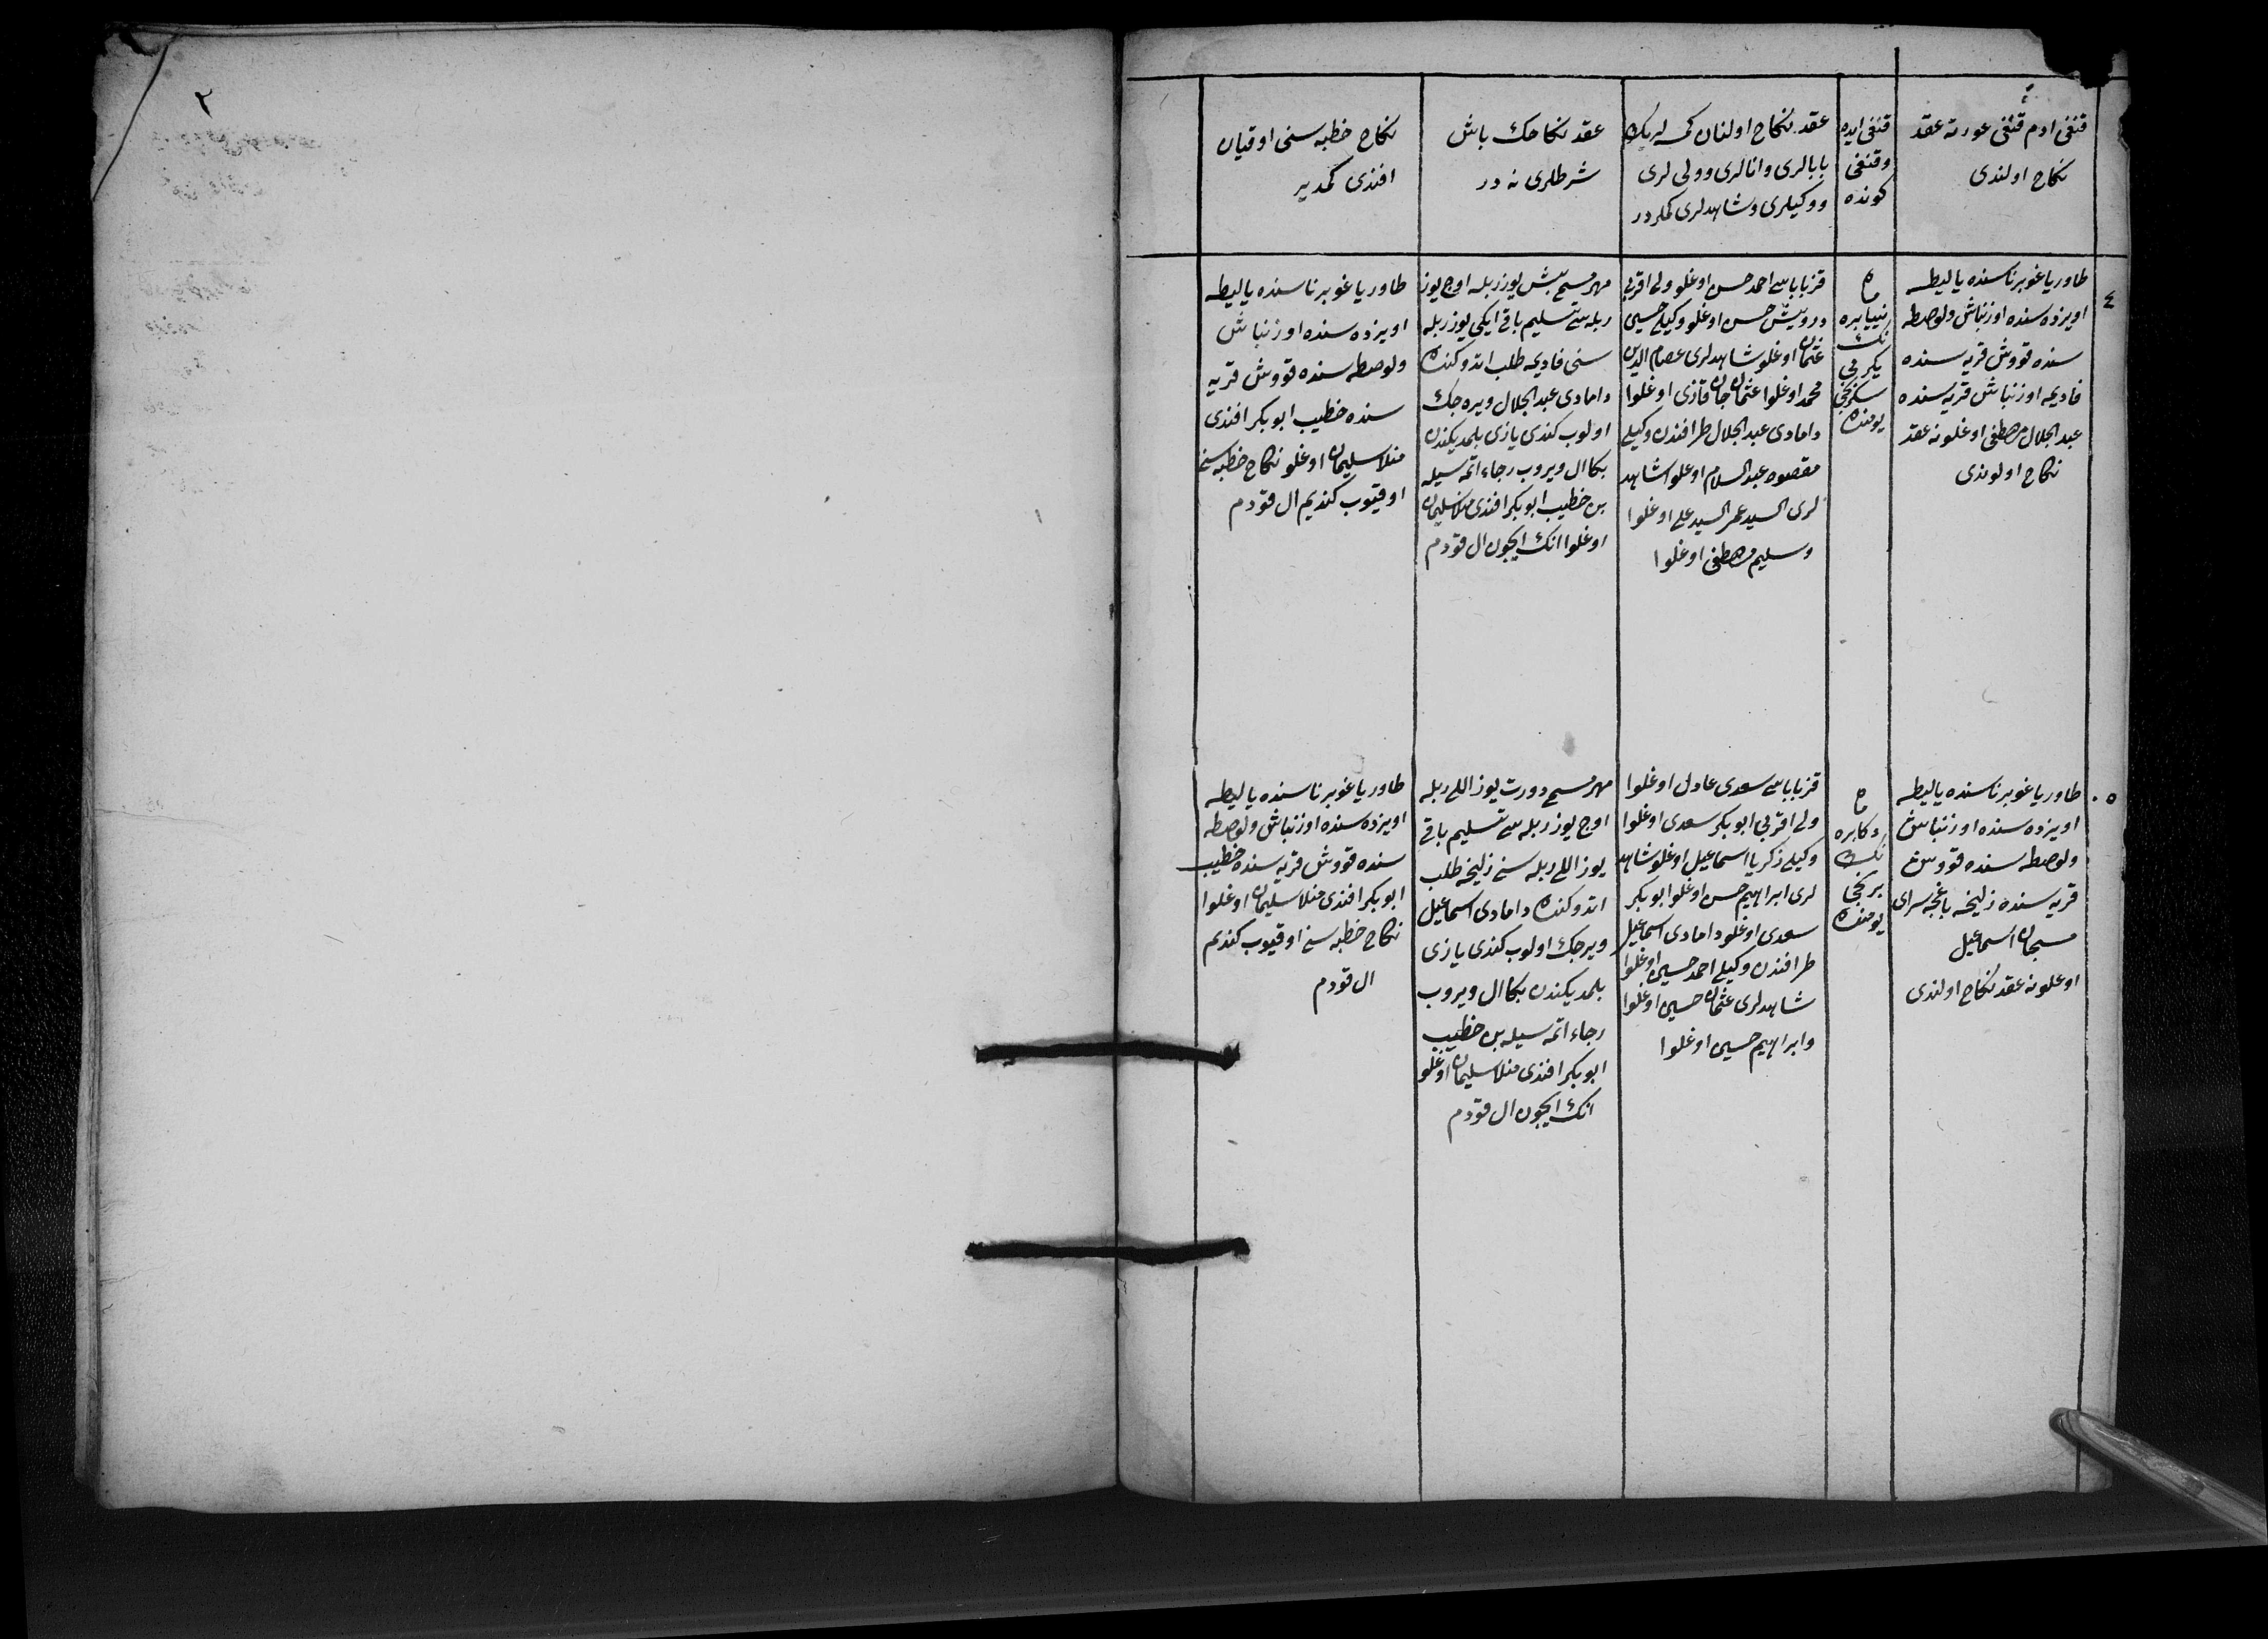 ٢
قنغی ادم قنغی عورته عقد
نكاح اولندی
قنغی ایده
وقنغی
كونده
عقد نكاح اولنان كمسه لرینك
بابالری وانالری وولی لری
ووكیلری وشاهدلری كملردر
عقد نكاحك باش
شرطلری نه در
نكاح خطبه سنی اوقیان
افندی كمدیر
٤
طاوریا غوبرناسنده یالیطه
اویزده سنده اوزنباش ولوصطه
سنده قووش قریه سنده
فادیمه اوزنباش قریه سنده
عبدالجلال مصطفی اوغلونه عقد
نكاح اولوندی
ماه
نییابره
نك
یكرمی
سكزنجی
یومنده
قز باباسی احمد حسن اوغلو ولی اقربی
درویش حسن اوغلو وكیلی حسین
عثمان اوغلو شاهدلری عصام الدین
محمد اوغلوا عثمان جان قازی اوغلوا
دامادی عبدالجلال طرافندن وكیلی
مقصود عبدالسلام اوغلوا شاهد
لری السید عمر السید علی اوغلوا
وسلیم مصطفی اوغلوا
مهر مسمی بش یوز ربله اوچ یوز
ربله سی تسلیم باقی ایكی یوز ربله
سنی فادیمه طلب اتدوكنده
دامادی عبدالجلال ویره جك
اولوب كندی یازی بلمدیكندن
بكا ال ویروب رجاء اتمه سیله
بن خطیب ابوبكر افندی منلا سلیمان
اوغلوا انك ایچون ال قودم
طاوریا غوبرناسنده یالیطه
اویزده سنده اوزنباش
ولوصطه سنده قووش قریه
سنده خطیب ابوبكر افندی
منلا سلیمان اوغلو نكاح خطبه سنی
اوقیوب كندیم ال قودم
٥
طاوریا غوبرناسنده یالیطه
اویزده سنده اوزنباش
ولوصطه سنده قووش
قریه سنده زلیخه باغچه سرای
اسماعیل
اوغلونه عقد نكاح اولندی
ماه
دكابره
نك
برنجی
یومنده
قز باباسی سعدی عادل اوغلوا
ولی اقربی ابوبكر سعدی اوغلوا
وكیلی زكریا اسماعیل اوغلو شاهد
لری ابراهیم حسن اوغلوا ابوبكر
سعدی اوغلو دامادی اسماعیل
طرافندن وكیلی احمد حسین اوغلوا
شاهدلری عثمان حسین اوغلوا
وابراهیم حسین اوغلوا
مهر مسمی دورت یوز اللی ربله
اوچ یوز ربله سی تسلیم باقی
یوز اللی ربله سنی زلیخه طلب
اتدوكنده دامادی اسماعیل
ویرجك اولوب كندی یازی
بلمدیكندن بكا ال ویروب
رجاء اتمه سیله بن خطیب
ابوبكر افندی منلا سلیمان اوغلو
انك ایچون ال قودم
طاوریا غوبرناسنده یالیطه
اویزده سنده اوزنباش ولوصطه
سنده قووش قریه سنده خطیب
ابوبكر افندی منلا سلیمان اوغلوا
نكاح خطبه سنی اوقیوب كندیم
ال قودم